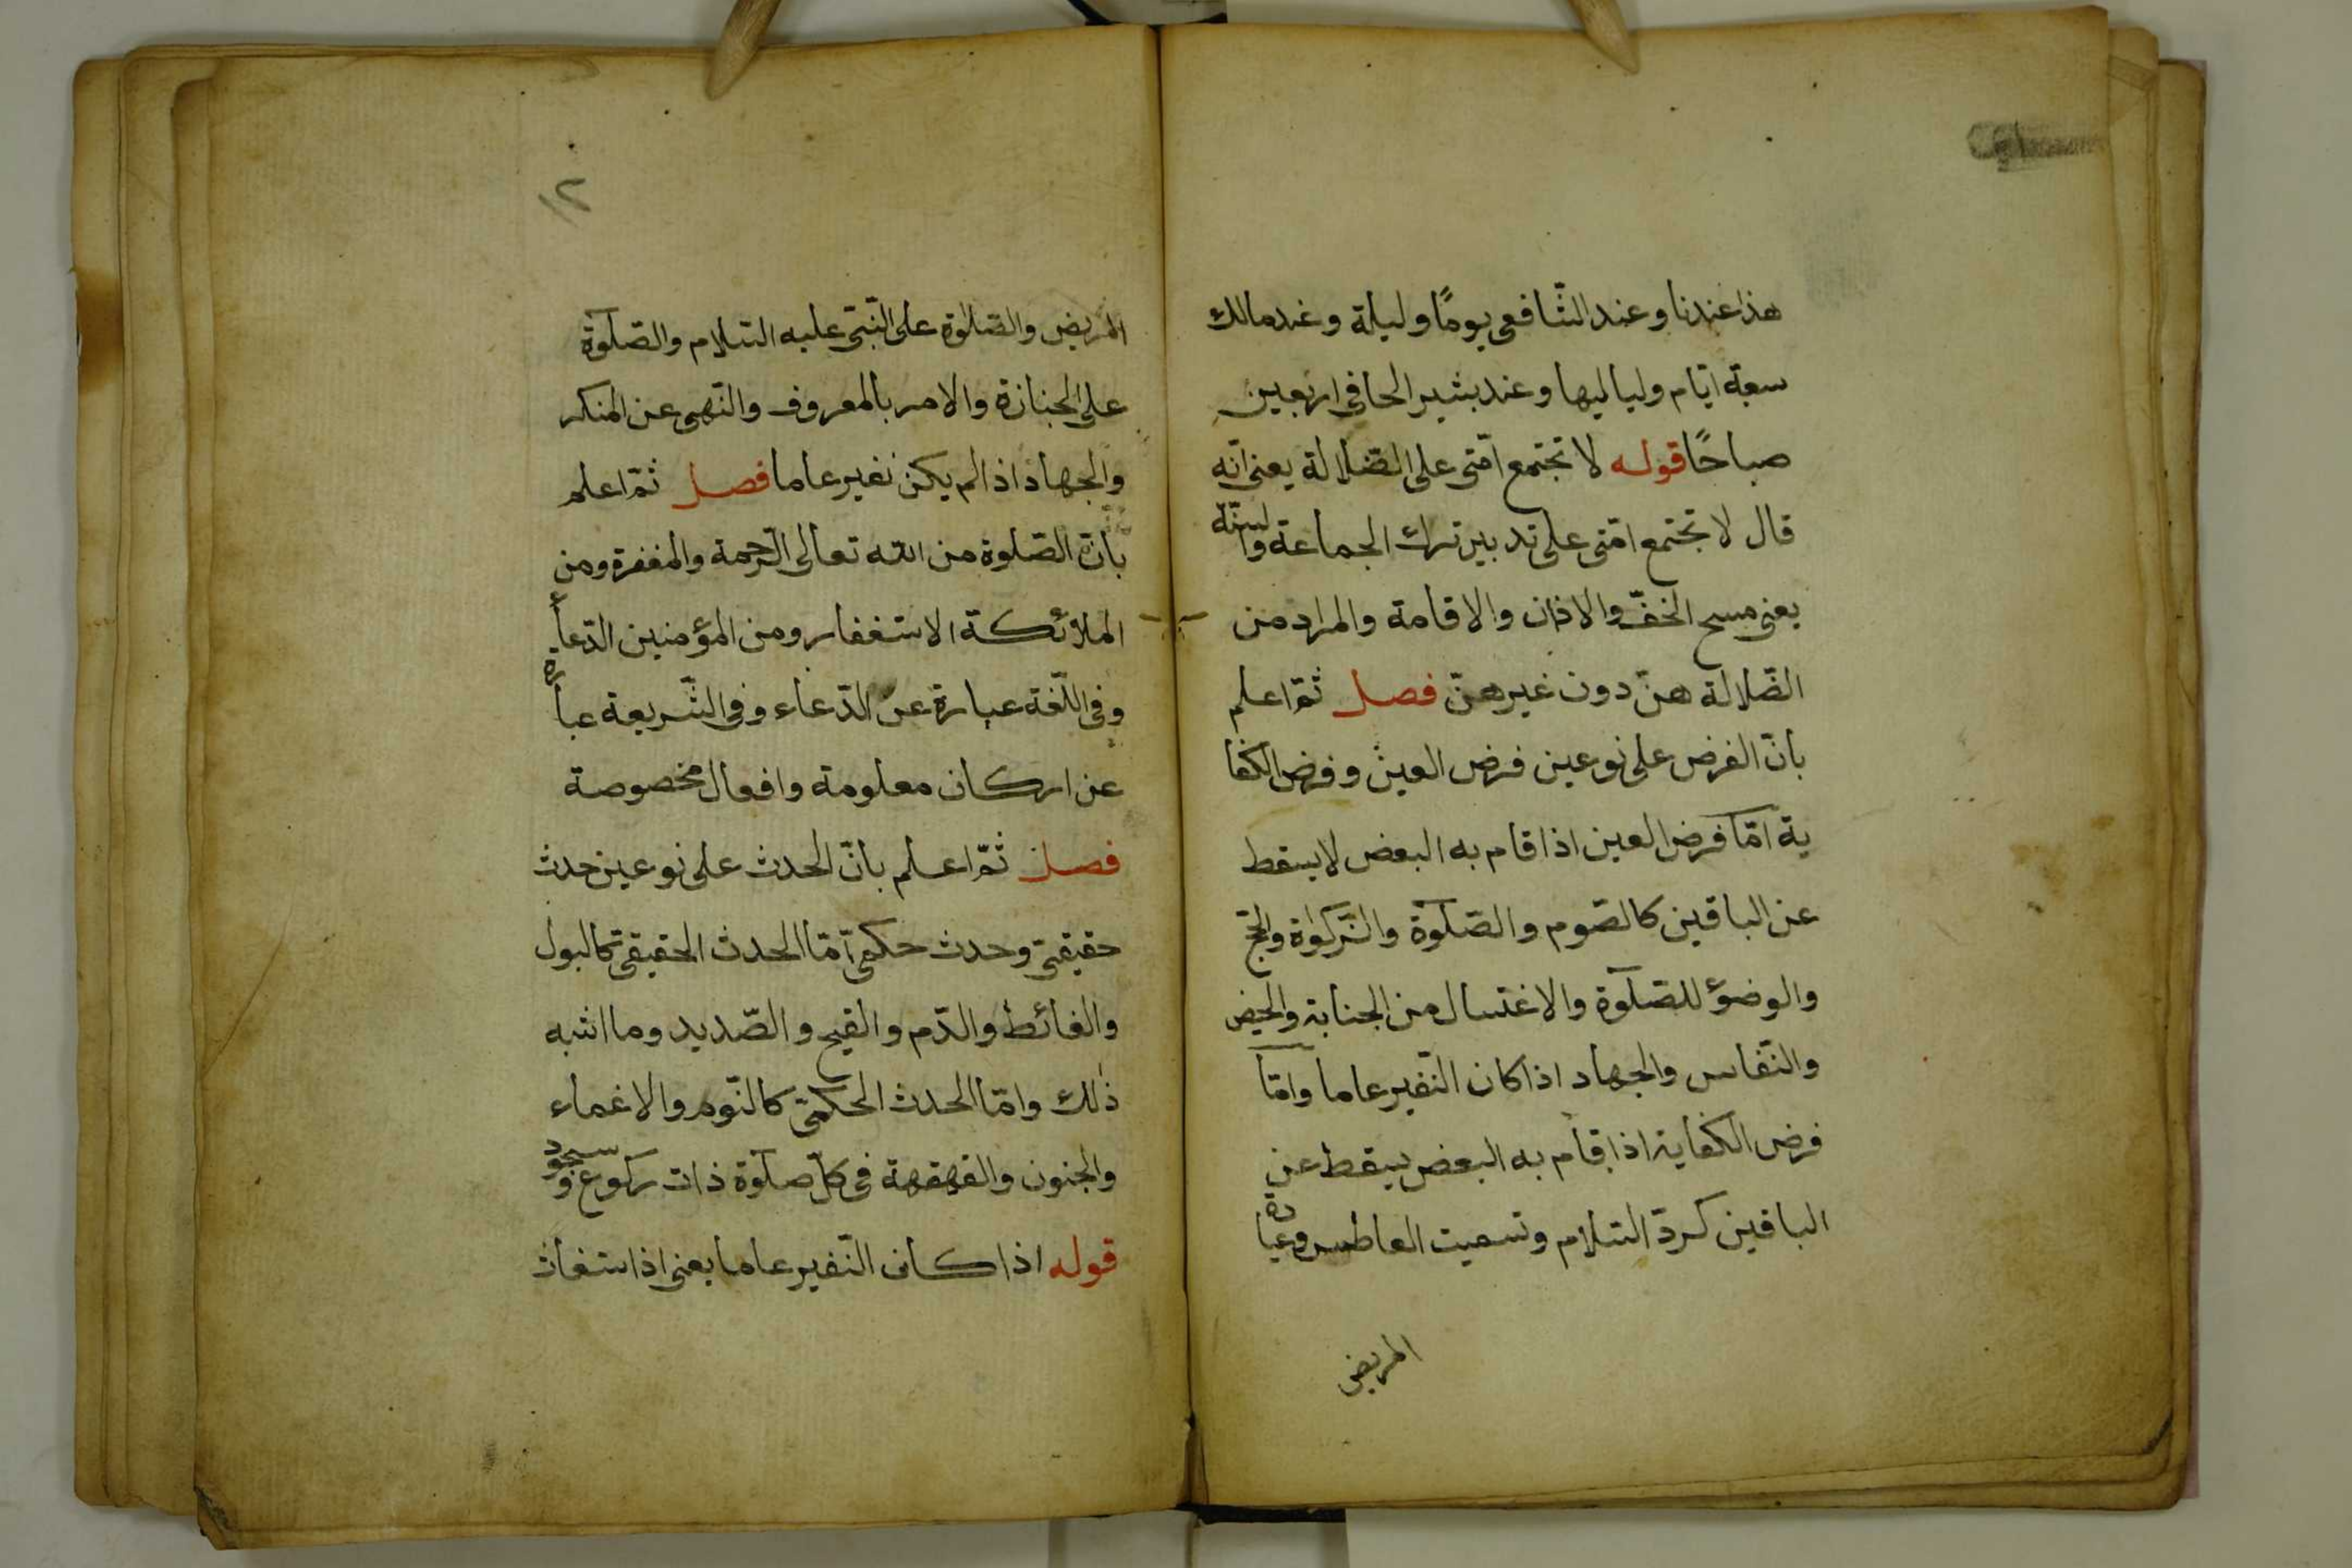 هذا عندنا وعند الشّافعى يومًا وليلة وعند مالك
سعبة ايّام ولياليها وعند بشير الحافى اربعين
صباحًا قوله لا تجتمع امّتى على الضّلالة يعنى انّه
قال لا تجتمع امّتى على تدبير ترك الجماعة والسنّة
يعنى مسح الخفّ والاذان والاقامة والمراد من
الضّلالة هنّ دون غيرهنّ فصل ثمّ اعلم
بانّ الفرض على نوعين فرض العين وفرض الكفا
ية امّا فرض العين اذا قام به البعض لا يسقط
عن الباقين كالصّوم والصّلوة والزّكوٰة والحجّ
والوضؤ للصّلوة والاغتسال من الجنابة والحيض
والنّفاس والجهاد اذا كان النّفير عاما وامّا
فرض الكفاية اذا قام به البعض يسقط عن
الباقين كردّ السّلام وتسميت العاطس وعيادة
المريض
١٢
المريض والصّلوٰة على النّبىّ عليه السّلام والصّلوة
على الجنازة والامر بالمعروف والنّهى عن المنكر
والجهاد اذا لم يكن نفير عاما فصل ثمّ اعلم
بانّ الصّلوة من اللّه تعالى الرّحمة والمغفرة ومن
الملائكة الاستغفار ومن المؤمنين الدّعاء
وفى اللّغة عبارة عن الدّعاء وفى الشّريعة عبارة
عن اركان معلومة وافعال مخصوصة
فصل ثمّ اعلم بانّ الحدث على نوعين حدث
حقيقىّ وحدث حكمىّ امّا الحدث الحقيقىّ كالبول
والغائط والدّم والقيح والصّديد وما اشبه
ذٰلك وامّا الحدث الحكمىّ كالنّوم والاغماء
والجنون والقهقهة فى كلّ صلوة ذات ركوع وسجود
قوله اذا كان النّفير عاما يعنى اذا استغاث